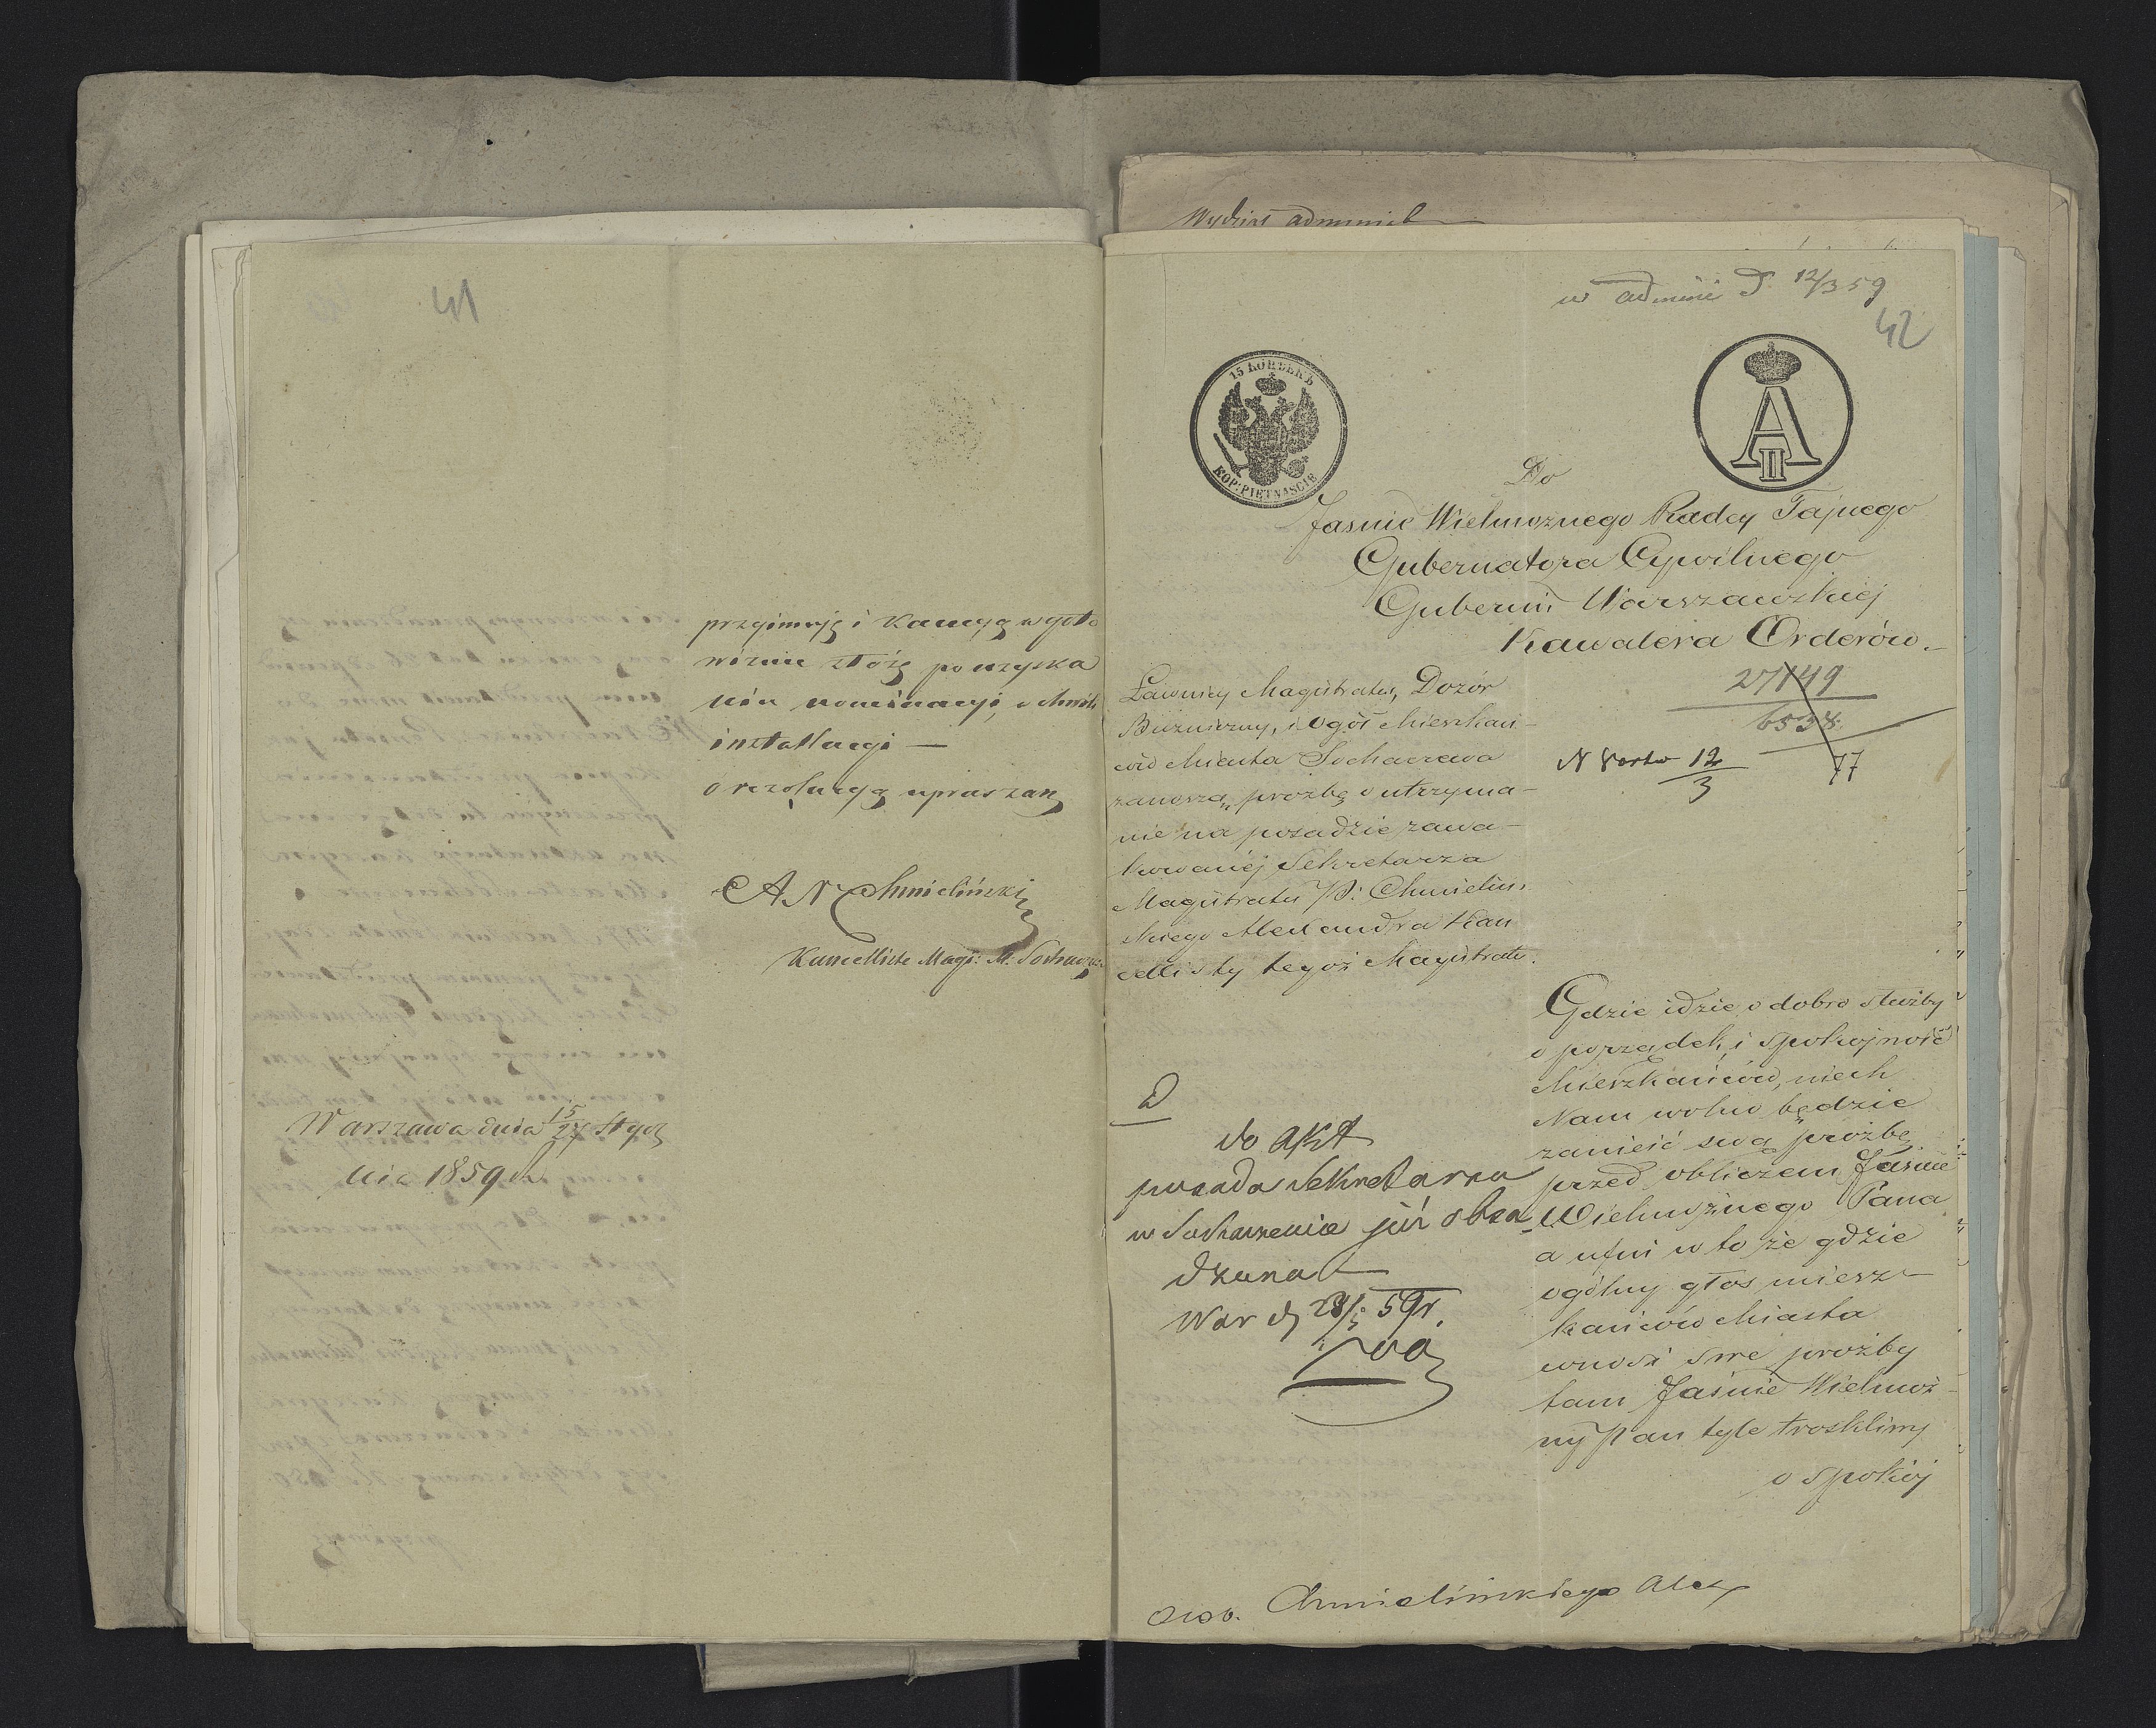 41
przyimuję i Kaucyą w goto
wiznie złożę po uzyska
niu nominacyi, o chwili
installacyi —
o rezolucyą upraszam
A N Chmieliński
Kancellista Mag: M. Sochacz:
Warszawa dnia 15/27 Stycz
nia 1859 r.
Wydział administ
w admini d. 12/3 59
42
15 КОПѢЕКЪ
KOP: PIĘTNAŚCIE
A II
Do
Jaśnie Wielmożnego Radcy Tajnego
Gubernatora Cywilnego
Gubernii Warszawskiej
Kawalera Orderów.
27149
6538
77
N Porto 12/3
Ławnicy Magistratu, Dozór
Bużniczny, i Ogół Mieszkań
ców Miasta Sochaczewa
zanoszą prożbę o utrzyma-
nie na posadzie zawa-
kowaniéj Sekretarza
Magistratu P: Chmieliń
skiego Alexandra Kan
cellisty tegoż Magistratu.
Gdzie idzie o dobro służby
o porządek, i spokojność
Mieszkańców, niech
Nam wolno będzie
zanieść swą prożbę
przed obliczem Jaśnie
Wielmożnego Pana
a ufni w to że gdzie
ogólny głos miesz-
kańców Miasta
wnosi swe prożby
tam Jaśnie Wielmoż-
ny Pan tyle troskliwy
o spokój
do Akt
posada Sekretarza
w Sochaczewie już obsa
dzona
War d 28/5 59 r.
Osob. Chmielińskiego Alex